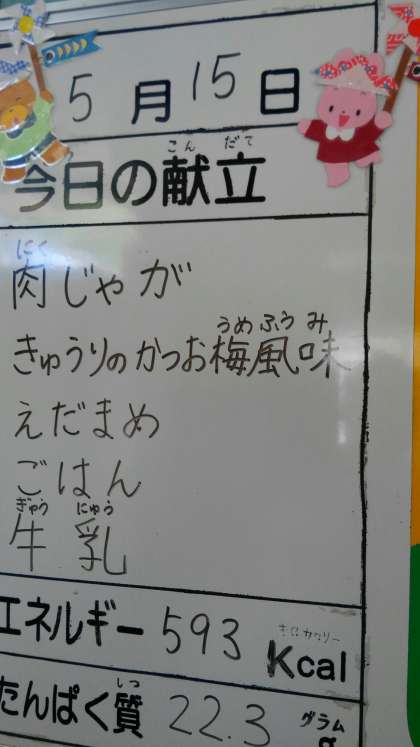 5月15日
こんだて
今日の献立
にく
肉じゃが
うめふうみ
きゅうりのかつお梅風味
えだまめ
ごはん
ぎゅうにゅう
牛乳
キロカロリー
エネルギー 593 Kcal
しつ グラム
たんぱく質 22.3 g